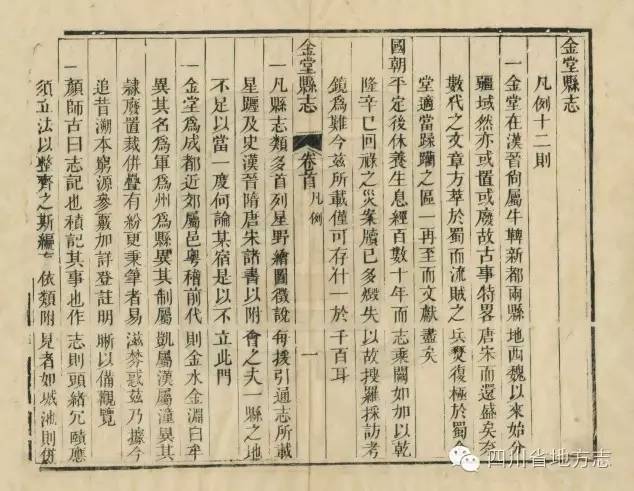 金堂縣志
凡例十二則
一金堂在漢晉尚屬牛鞞新都兩縣地西魏以來始分
疆域然亦或置或廢故古事特畧唐宋而還盛矣奈
數代之文章方萃於蜀而流賊之兵燹復極於蜀金
堂適當蹂躪之區一再至而文獻盡矣
國朝平定後休養生息經百數十年而志乘闕如加以乾
隆辛巳回祿之災案牘已多燬失以故搜羅採訪考
鏡為難今茲所載僅可存什一於千百耳
金堂縣志 卷首 凡例 一
一凡縣志類多首列星野繪圖徵說每援引通志所載
星躔及史漢晉隋唐宋諸書以附會之夫一縣之地
不足以當一度何論某宿是以不立此門
一金堂為成都近郊屬邑粵稽前代則金水金淵白牟
異其名為軍為州為縣異其制屬凱屬漢屬潼異其
隸廢置裁併疊有紛更秉筆者易滋棼惑茲乃據今
追昔溯本窮源參覈加詳登註明晰以備觀覽
一顏師古曰志記也積記其事也作志則頭緒冗頤應
須立法以整齊之斯編 依類附見者如城池則併
四川省地方志